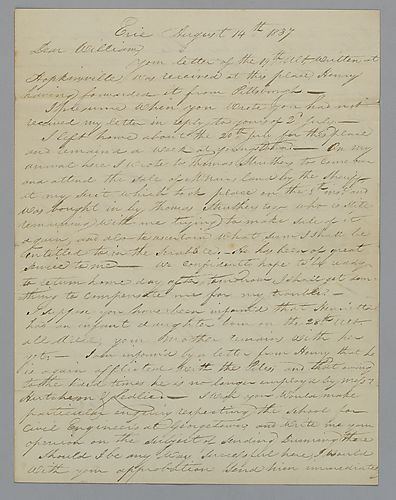 Erie August 14th 1837
Dear William,
Your letter of the 19th Ult written at
Hopkinsville was received at this place Henry
having forwarded it from Pittsburgh —
I presume when you wrote you had not
received my letter in reply to yours of 2d July —
I left home about the 20th July for this place
and remained a week at — On my
arrival here I wrote to Thomas Struthers to come over
and attend the sale of land by the Sheriff
at my suit which took place on the and
was bought in by Thomas Struthers Esqr who is still
remaining with me trying to make sale of it
again, and also to ascertain what sum I shall be
entitled to in the — He has been of great
service to me — We confidently hope to be ready
to return home day after tomorrow I shall get some
thing to compensate me for my trouble. —
I suppose you have been informed that Henrietta
has an infant daughter born on the 28th Ult
all well, your Mother remains with her
yet. — I am informed by a letter from Henry that he
is again afflicted with the Piles, and that owing
to the hard times he is no longer employed by Messrs
Hutcheson & Ledlie — I wish you would make
particular enquiry respecting the School for
Civil Engineers at Georgetown and write me your
opinion on the subject of sending there
Should I be any way successful here, I would
with your approbation send him immediately